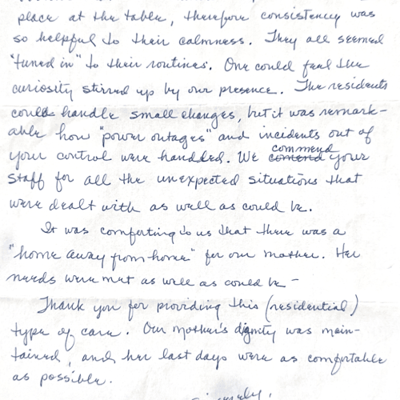 place at the table, therefore consistency was
so helpful to their calmness. They all seemed
"tuned in" to their routines. One could feel the
curiosity stirred up by our presence. The residents
could handle small changes, but it was remark-
able how "power outages" and incidents out of
your control were handled. We comend commend your
staff for all the unexpected situations that
were dealt with as well as could be.
It was comforting to us that there was a
"home away from home" for our mother. Her
needs were met as well as could be -
Thank you for providing this (residential)
type of care. Our mother's dignity was main-
tained, and her last days were as comfortable
as possible.